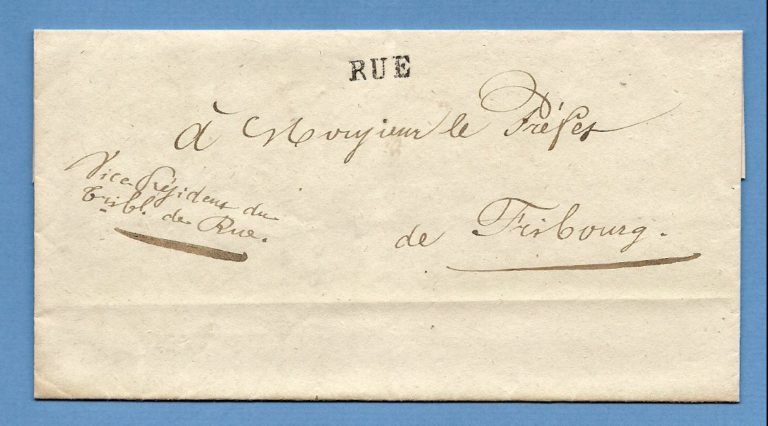 RUE
à Monsieur le Préfet
Vice-Président du
Tribl. de Rue.
de Fribourg.